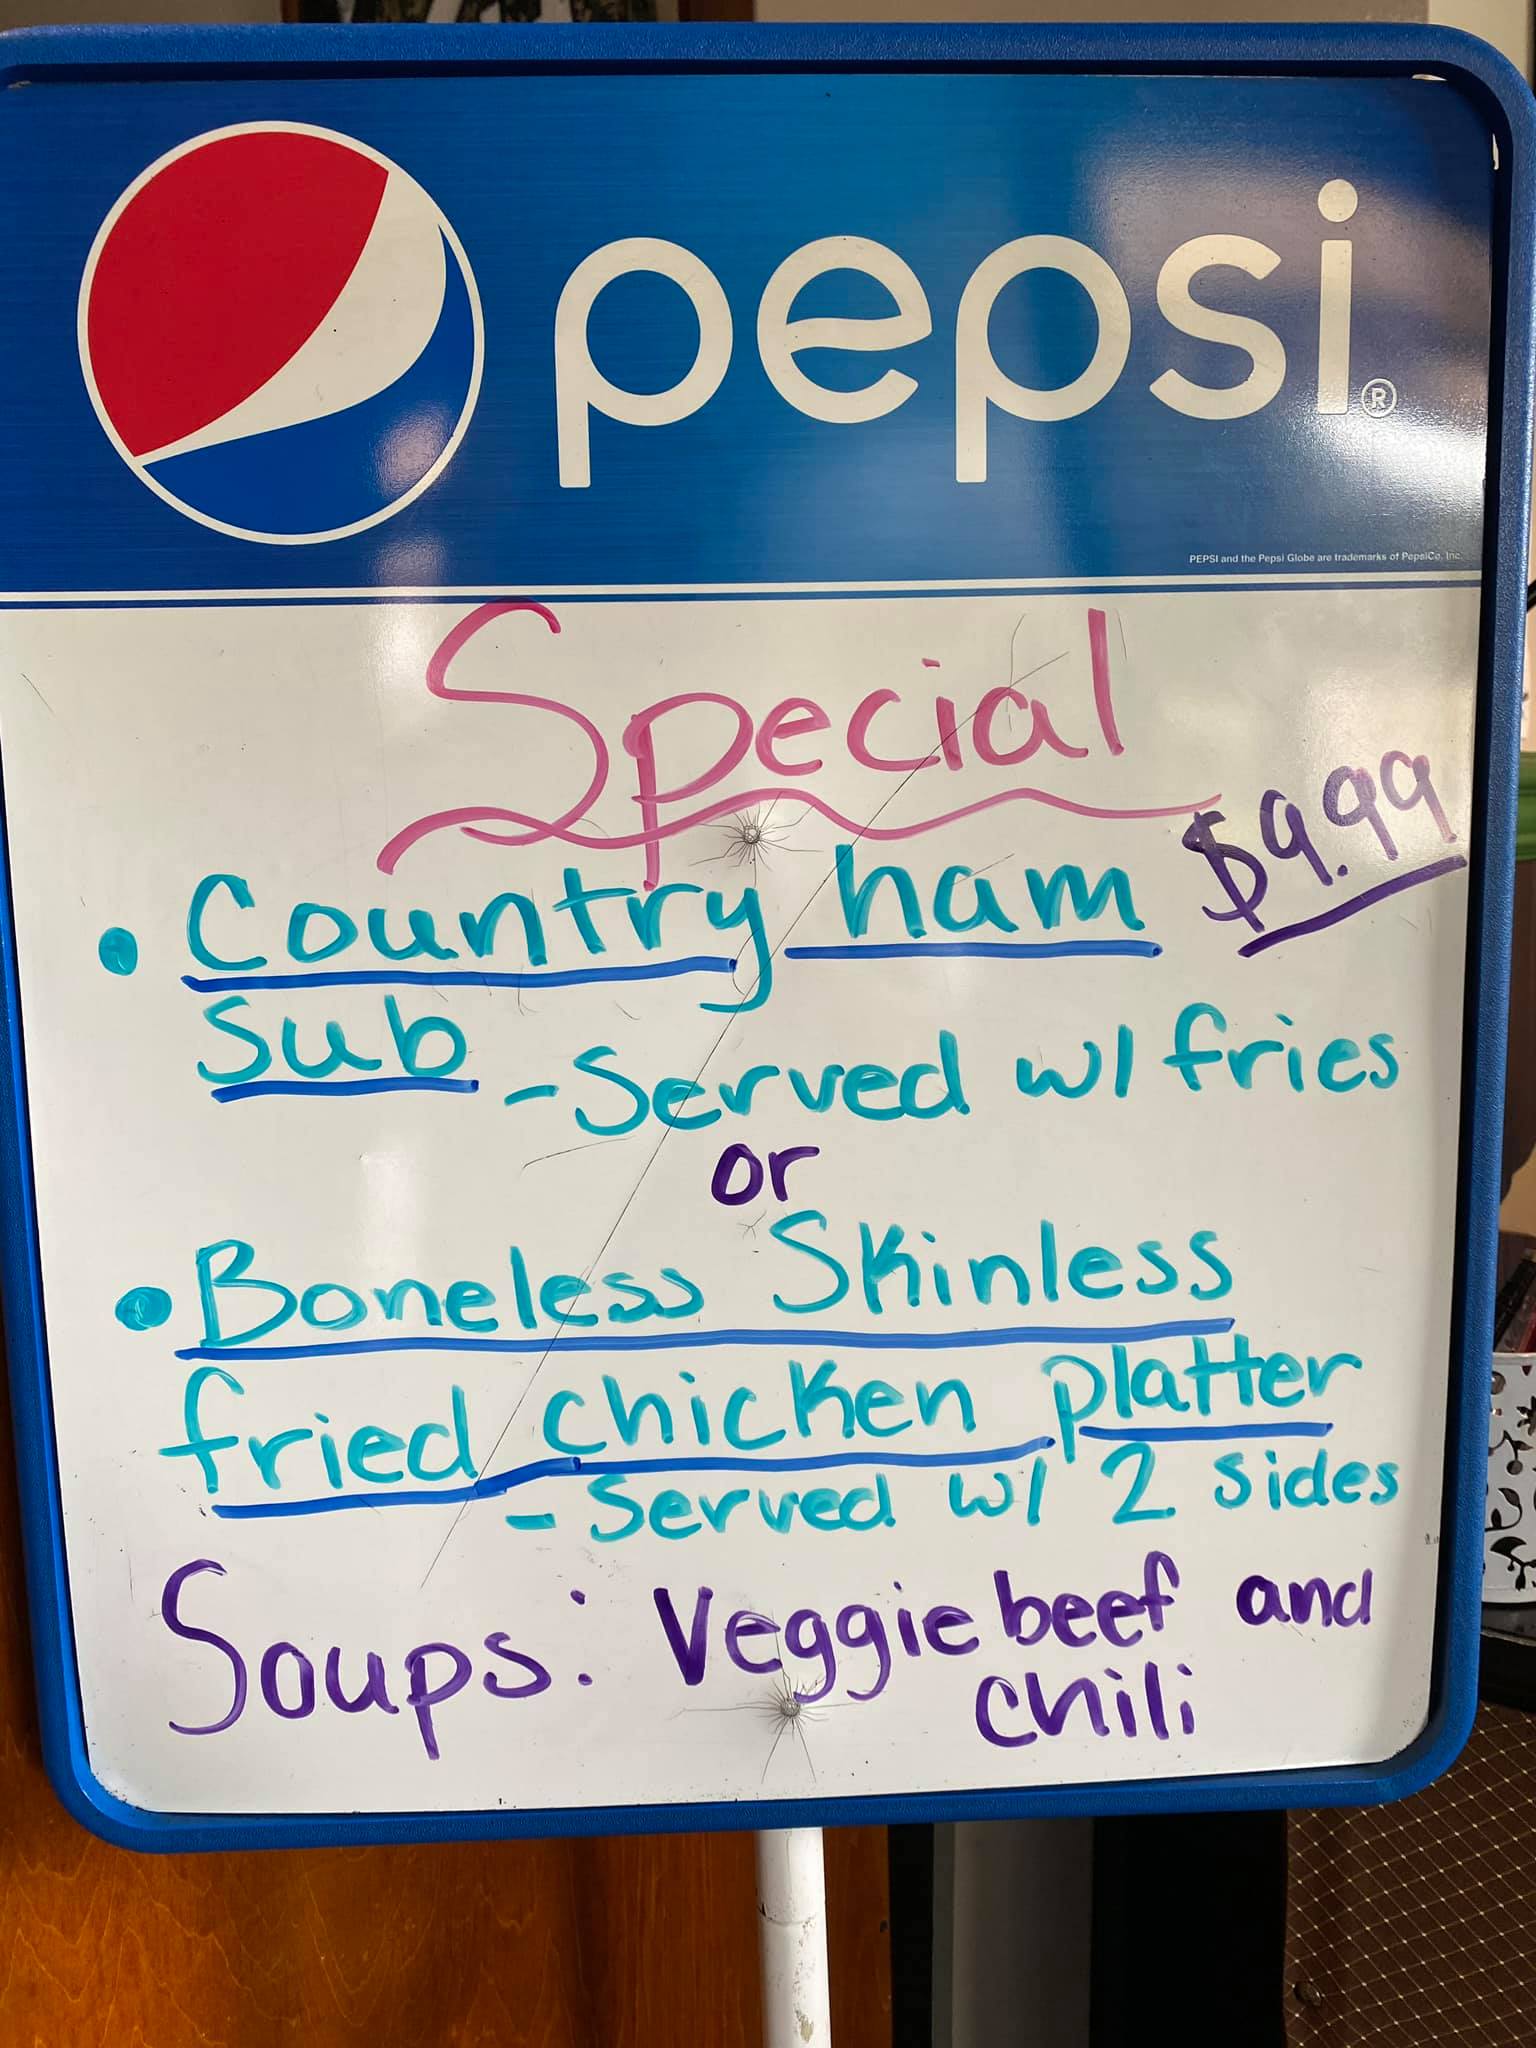 pepsi®
PEPSI and the Pepsi Globe are trademarks of PepsiCo, Inc.
Special
$9.99
• Country ham
Sub - Served w/ fries
or
• Boneless Skinless
fried chicken platter
- Served w/ 2 sides
Soups: Veggie beef and
chili